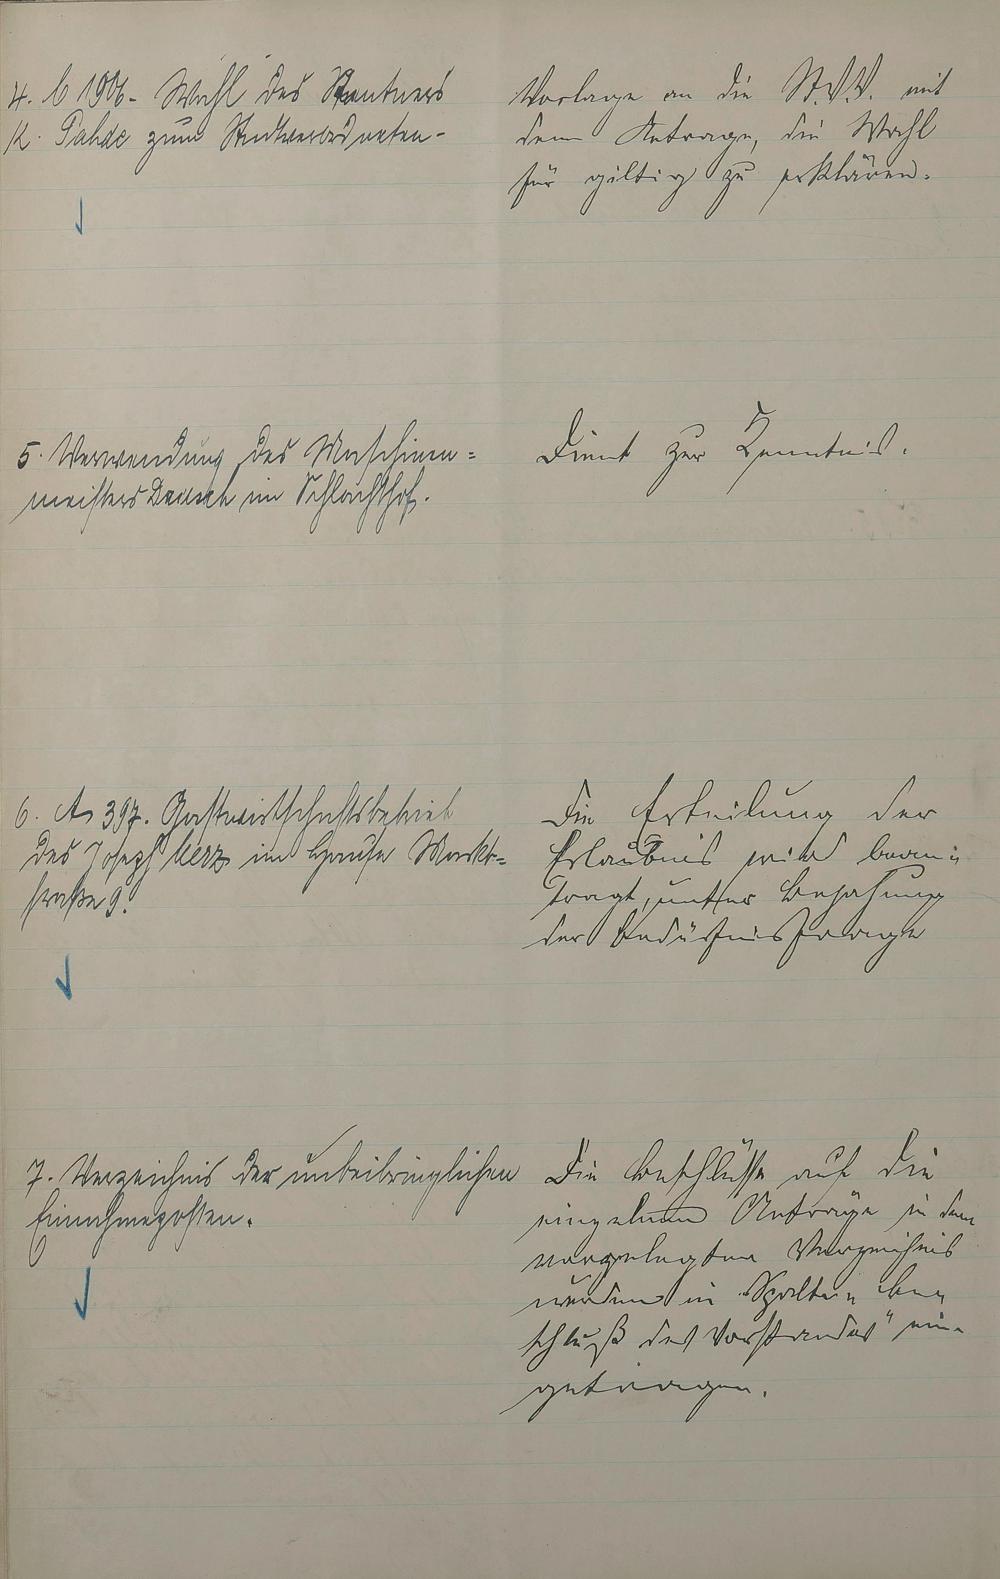 4. b 1906. Wahl des Rentners
K. Pahde zum Stadtverordneten.
Vorlage an die St.V.V. mit
dem Antrage, die Wahl
für giltig zu erklären.
5. Verwendung des Maschinen=
meisters Deusch im Schlachthof.
Dient zur Kenntnis.
6. A 397. Gastwirtschaftsbetrieb
des Joseph Merz im Hause Markt=
straße 9.
Die Erteilung der
Erlaubnis wird bean=
tragt, unter Bejahung
der Bedürfnisfrage
7. Verzeichnis der unbeibringlichen
Einnahmeposten.
Die Beschlüsse auf die
einzelnen Anträge in dem
vorgelegten Verzeichnis
werden in Spalte „Be=
schluß des Vorstandes" ein=
getragen.